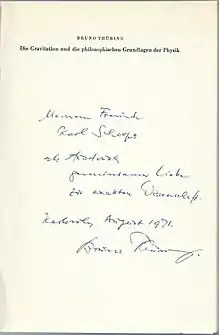 BRUNO THÜRING
Die Gravitation und die philosophischen Grundlagen der Physik
Meinem Freunde
Karl
als Ausdruck
gemeinsamer Liebe
zur exakten Wissenschaft.
Karlsruhe, August 1971.
Bruno Thüring.